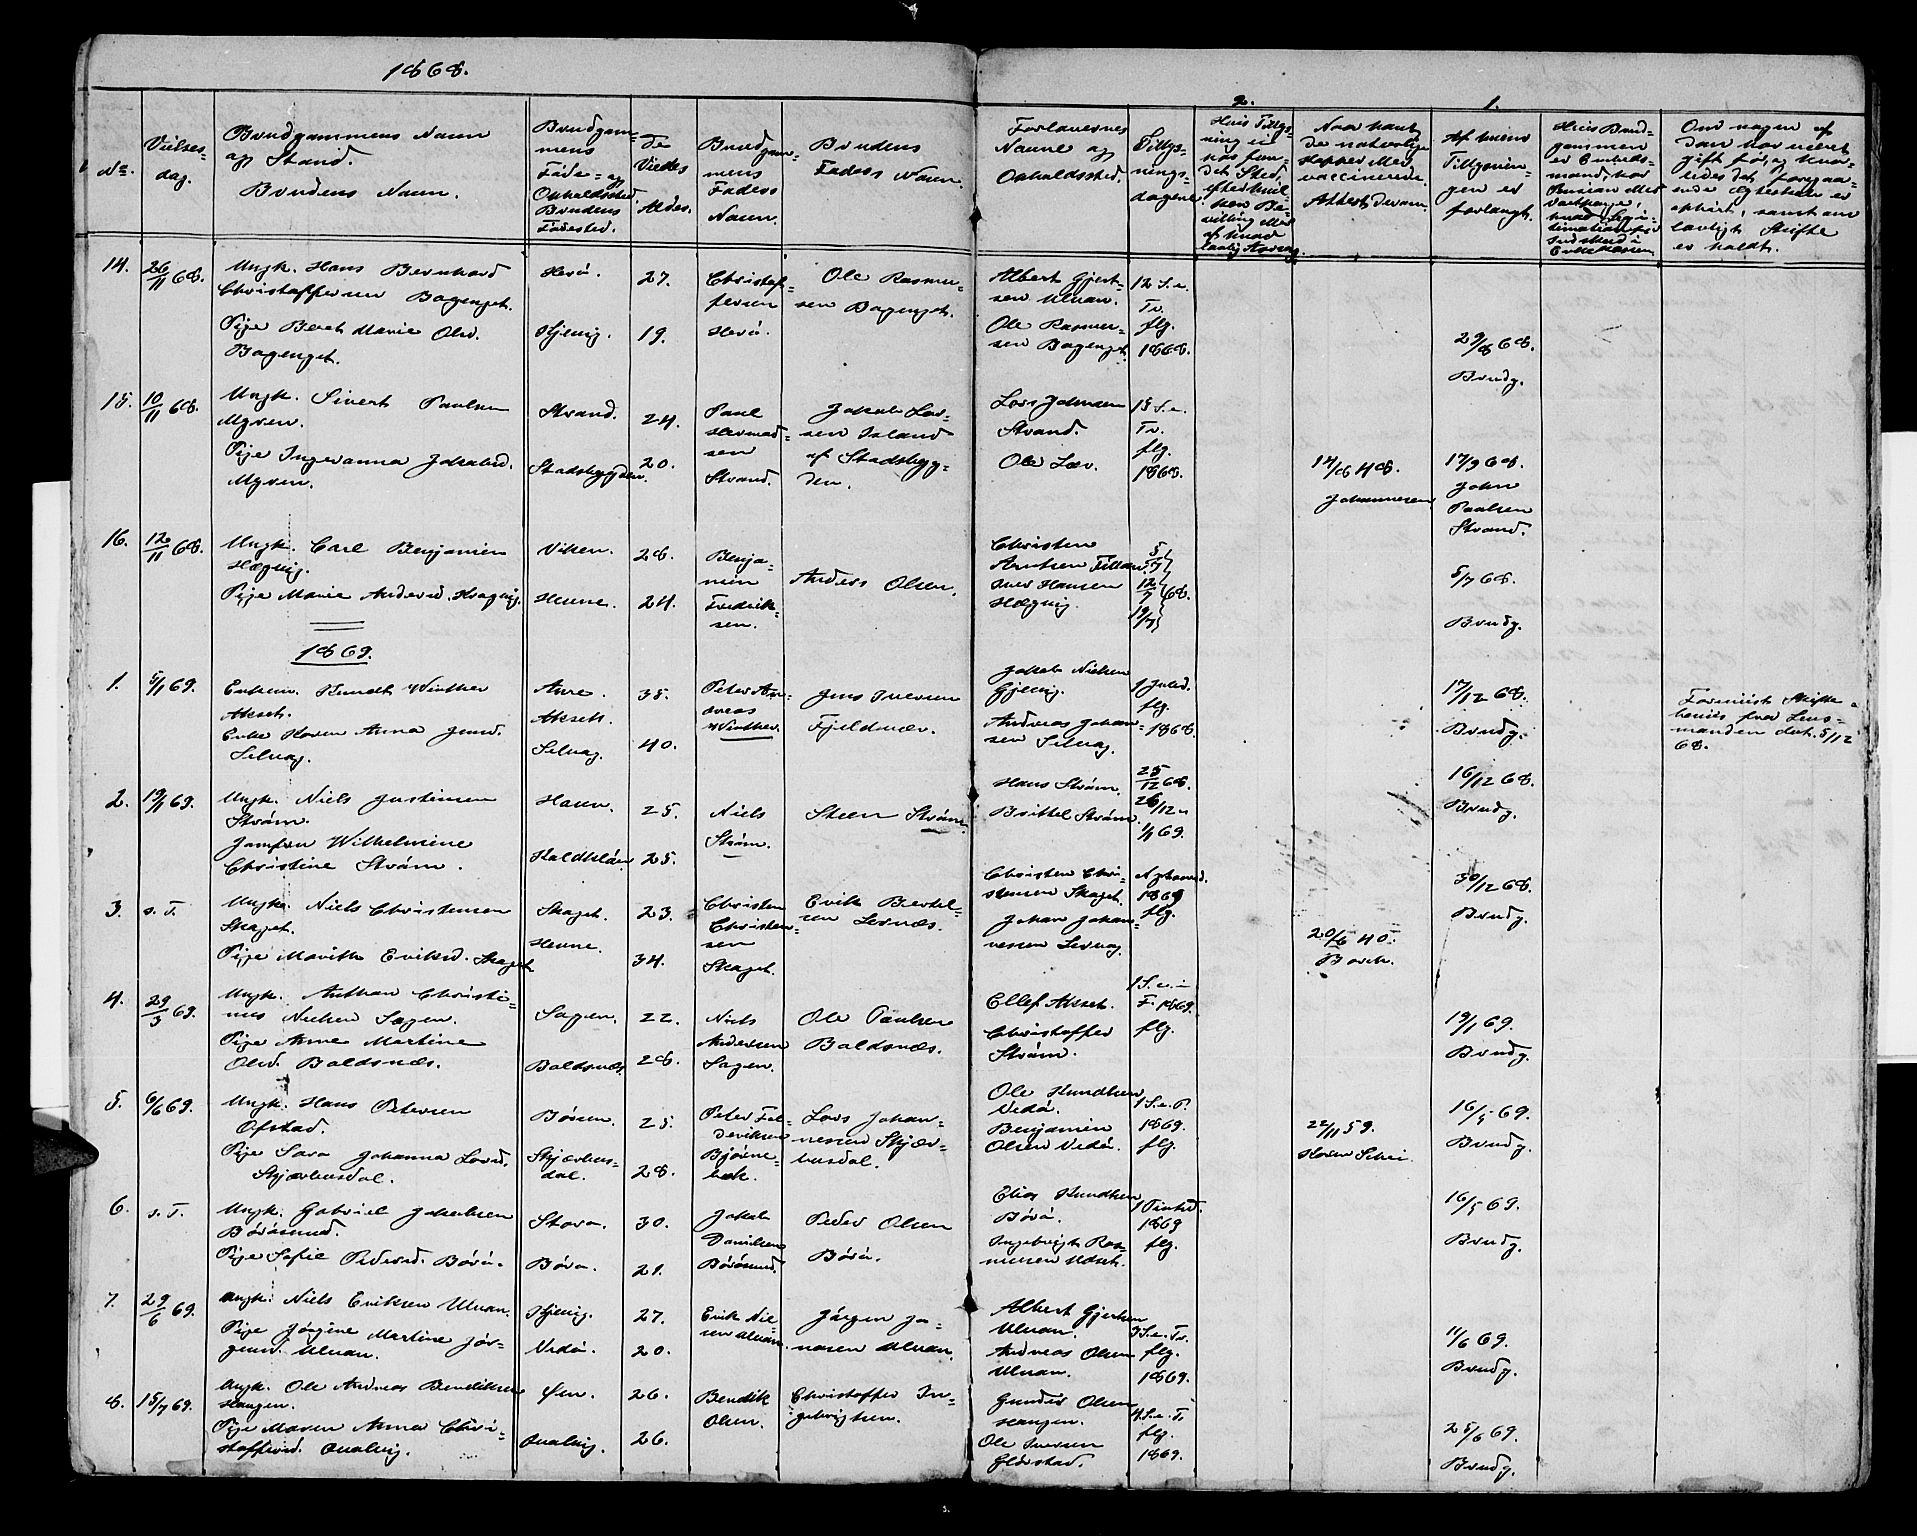 1868.
2.
1.
No.
Vielses-
dag.
Brudgommens Navn
og Stand.
Brudens Navn.
Brudgom-
mens
Føde- og
Opholdssted.
Brudens
Fødested.
De
Viedes
Alder.
Brudgom-
mens
Faders
Navn.
Brudens
Faders Navn.
Forlovernes
Navne og
Opholdssted.
Tillys-
nings-
dagene
Naar havt
de naturlige
Kopper eller
vaccinerede.
Attest derom.
Af hvem
Tillysnin-
gen er
forlangt.
Om nogen af
dem har været
gift før, og hvor-
ledes det foregaa-
ende Ægteskab er
ophørt, samt om
lovligt Skifte
er holdt.
14.
26/11 68.
Ungk. Hans Bernhard
Christoffersen Bogenget.
Pige Beret Marie Olsd.
Bogenget.
Herø.
Kjelvig.
27.
19.
Christof-
fersen
Herø
Ole Rasmus-
sen Bogenget.
Albert Gjert-
sen Ulvan.
Ole Rasmus-
sen Bogenget.
12 S. e.
Tr.
flg.
1868.
29/8 68.
Brudg.
15.
10/11 68.
Ungk. Sivert Paulsen
Myren.
Pige Ingeranna Jakobsd.
Myren.
Strand.
Stadsbygden.
24.
20.
Paul
Hermod-
sen
Strand.
Jakob Lar-
sen Island
af Stadsbyg-
den.
Lars Johnsen
Strand.
Ole Lær.
15 S. e.
Tr.
flg.
1868.
14/8 48.
Johannesen
17/9 68.
John
Paulsen
Strand.
16.
12/11 68.
Ungk. Carl Benjamin
Hægvig.
Pige Marie Andersd. Hægvig.
Viken.
Hevne.
28.
24.
Benja-
min
Fredrik-
sen.
Anders Olsen.
Christen
Arntsen
Iver Hansen
Hægvig.
5/7
12/7 68.
19/7
5/7 68.
Brudg.
1869.
1.
5/1 69.
Enkem. Bendt Winther
Akset.
Enke Karen Anna Jensd.
Selvag.
Aure.
Akset.
Selvag
35.
40.
Peter An-
dreas
Winther.
Jens Iversen
Fjeldvær.
Jakob Nielsen
Gjevig.
Andreas Johan-
sen Selvag.
1 Juled.
flg.
1868.
17/12 68.
Brudg.
Forevist Skifte-
bevis fra Lens-
manden dat. 5/12
68.
2.
19/1 69.
Ungk. Niels Justinsen
Strøm.
Jomfru Wilhelmine
Christine Strøm.
Havn.
Kaldkløv
25.
25.
Niels
Strøm.
Steen Strøm.
Hans Strøm.
Brittel Strøm.
25/12 68.
26/12 "
1/1 69.
16/12 68.
Brudg.
3.
s. T.
Ungk. Niels Christensen
Skaget.
Pige Marith Eriksd. Skaget
Skaget.
Hevne.
23.
34.
Christen
Christen-
sen
Skaget.
Erik Bertel-
sen Lernæs.
Christen Chri-
stensen Skaget.
Johan Johan-
nesen Lervag
1869
flg.
20/6 40.
Barck.
30/12 68.
Brudg.
4.
29/3 69.
Ungk. Anthon Christi-
nus Nielsen Sagen.
Pige Anne Martine
Olsd. Boldsnæs.
Sagen.
Boldsnæs.
22.
28.
Niels
Andersen
Sagen.
Ole Paulsen
Boldsnæs.
Ellef Akset.
Christoffer
Strøm.
1 S. i
F. 1869.
flg.
19/1 69.
Brudg.
5.
6/6 69.
Ungk. Hans Petersen
Ofstad.
Pige Sara Johanna Larsd.
Skjærbusdal.
Børsen.
Skjærbus-
dal.
25.
28.
Peter Fre-
deriksen
Bjørne-
bæk.
Lars Johan-
nesen Skjær-
busdal.
Ole Knudtsen
Vedø.
Benjamin
Olsen Vedø.
1 S. e. P.
1869.
flg.
22/11 59.
16/5 69.
Brudg.
6.
s. T.
Ungk. Gabriel Jakobsen
Børøsund.
Pige Sofie Pedersd. Børø.
Storø.
Børø.
30.
21.
Jakob
Danielsen
Børøsund.
Peder Olsen
Børø.
Elias Knudtsen
Børø.
Ingebrigt Ras-
mussen Akset.
1 Pintsd.
1869
flg.
16/5 69.
Brudg.
7.
29/6 69.
Ungk. Niels Eriksen Ulvan.
Pige Jørgine Martine Jør-
gensd. Ulvan.
Kjelvig.
Vedø.
27.
20.
Erik Niel-
sen Ulvan.
Jørgen Jo-
nasen Ulvan.
Albert Gjertsen
Ulvan.
Andreas Olsen
Ulvan.
3 S. e. Tr.
flg.
1869.
11/6 69.
Brudg.
8.
15/7 69.
Ungk. Ole Andreas Bendiksen
Hangen.
Pige Maren Anna Chri-
stoffersd. Qualvig.
Øen.
Qualvig.
26.
26.
Bendik
Olsen.
Christoffer In-
gebrigtsen.
Gunder Olsen
Hangen.
Ole Iversen
Glørstad.
4 S. e. Tr.
flg.
1869.
25/6 69.
Brudg.